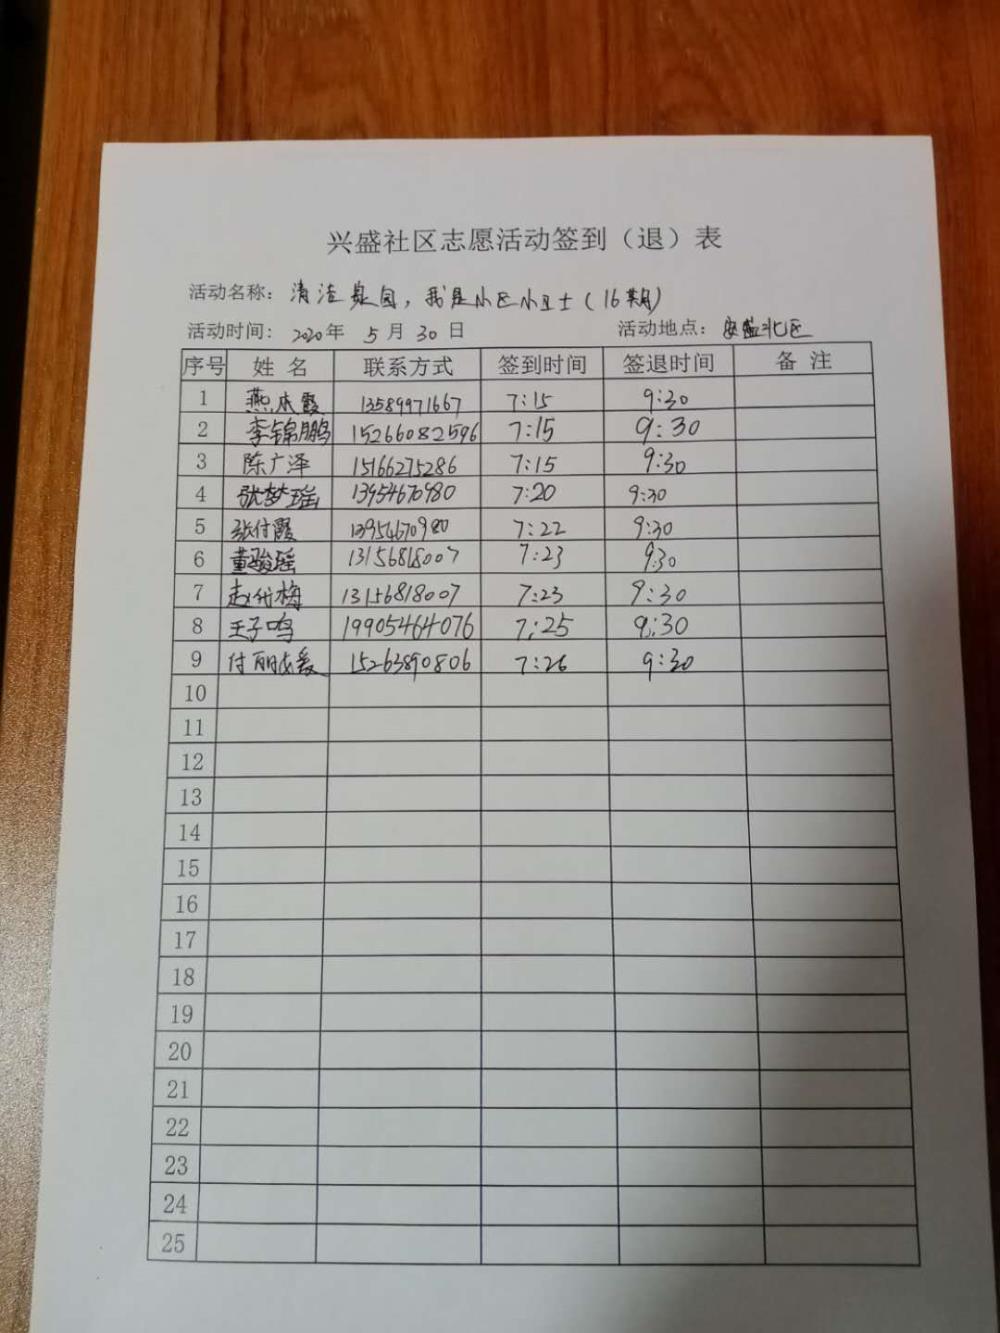 兴盛社区志愿活动签到（退）表
活动名称：清洁家园，我是小区小卫士（16期）
活动时间：2020年 5月 30日 活动地点：安盛北区
序号 姓名 联系方式 签到时间 签退时间 备注
1 燕庆霞 13589971667 7:15 9:30
2 李锦鹏 15266082596 7:15 9:30
3 陈广泽 15166275286 7:15 9:30
4 张梦瑶 13954670980 7:20 9:30
5 张付霞 13954670980 7:22 9:30
6 董骏瑶 13156818007 7:23 9:30
7 赵代梅 13156818007 7:23 9:30
8 王子鸣 19905464076 7:25 9:30
9 付丽媛 15263890806 7:26 9:30
10
11
12
13
14
15
16
17
18
19
20
21
22
23
24
25